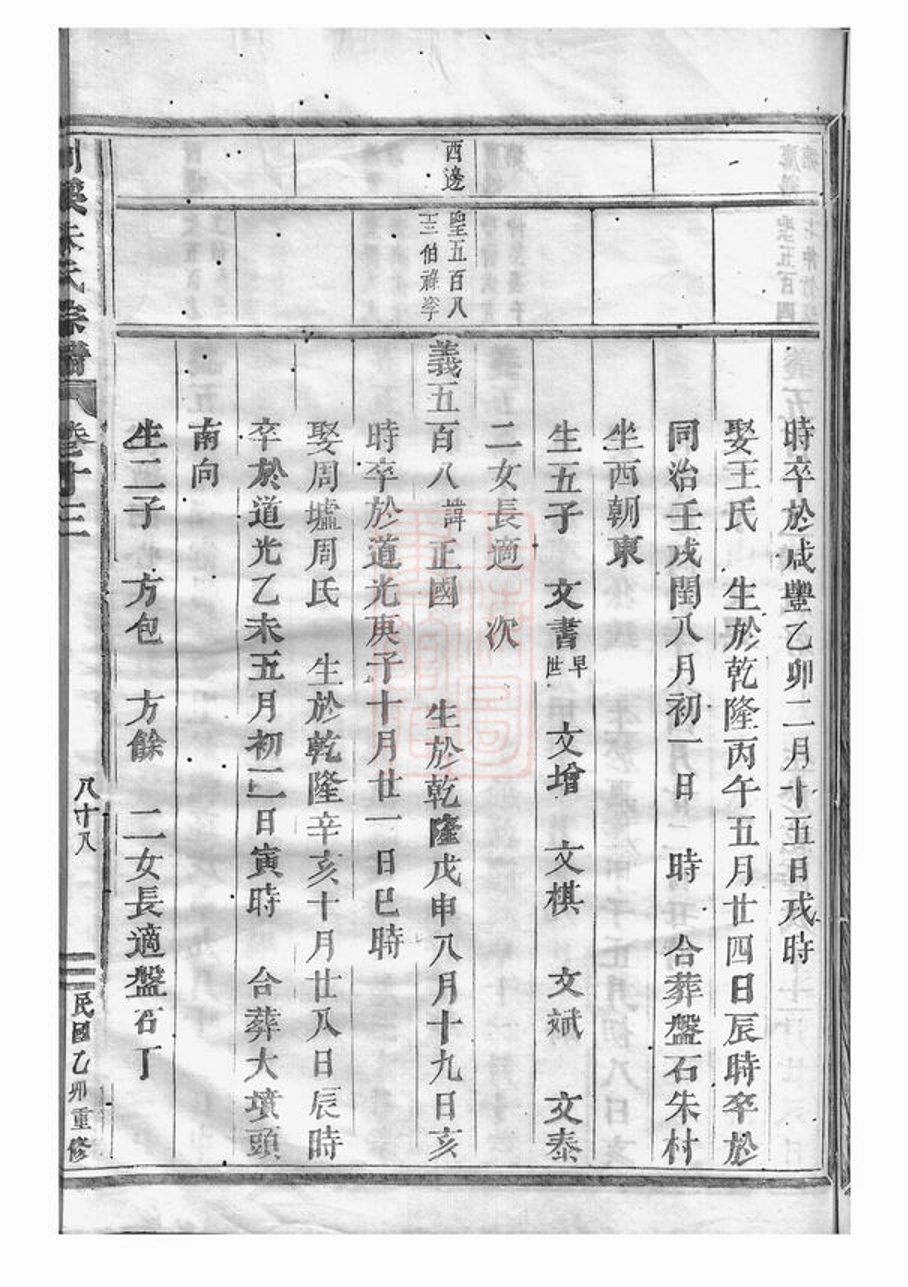 時卒於咸豐乙卯二月十五日戌時
娶王氏 生於乾隆丙午五月廿四日辰時卒於
同治壬戌閏八月初一日 時 合葬盤石朱村
坐西朝東
生五子 文書早世 文增 文棋 文斌 文泰
二女長適 次
西邊
聖五百八
三伯祿學
義五百八諱正國 生於乾隆戊申八月十九日亥
時卒於道光庚子十月廿一日巳時
娶周墟周氏 生於乾隆辛亥十月廿八日辰時
卒於道光乙未五月初二日寅時 合葬大墳頭
南向
生二子 方包 方餘 二女長適盤石丁
朱氏宗譜 卷十三 八十八 民國乙卯重修